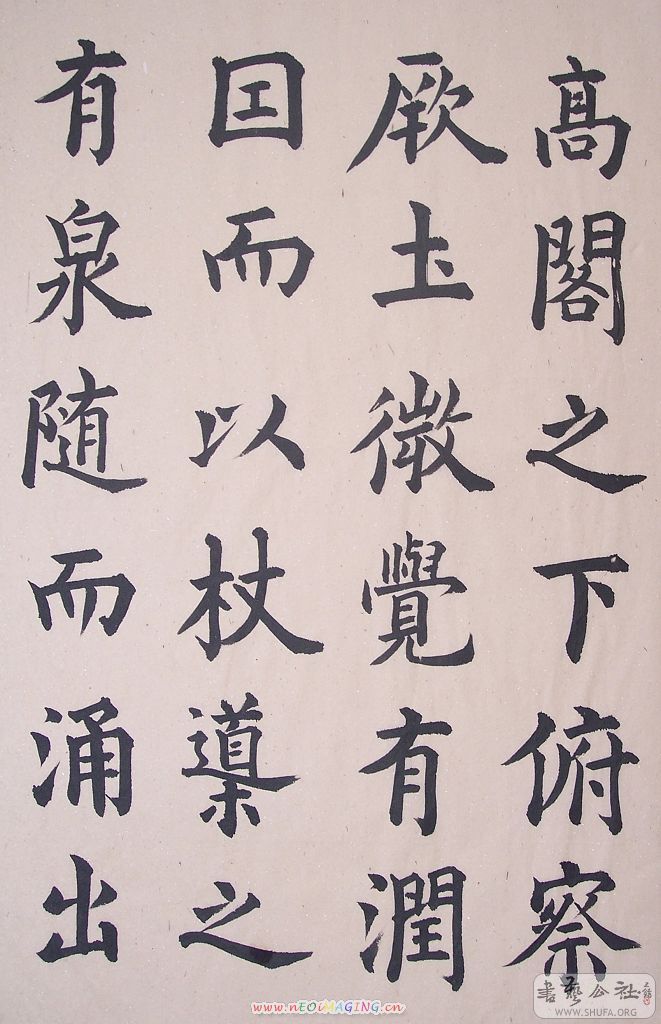 髙閣之下俯察
厥圡微覺有潤
囙而以杖導之
有泉随而涌出
www.nEOiMAGING.cn
書藝公社
WWW.SHUFA.ORG